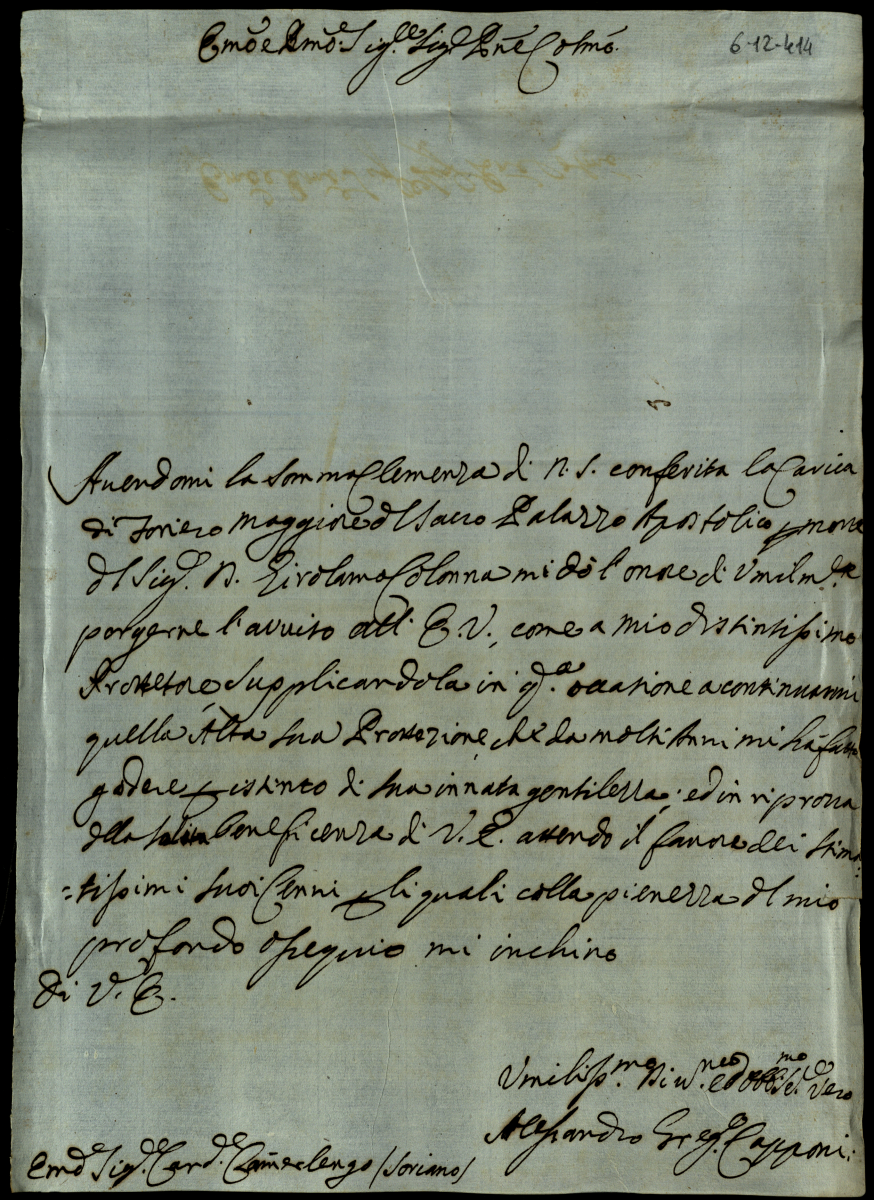 Emõ e Rmõ Sig.re Sig.re Pñe Colmõ.
6-12-414
Auendomi la somma Clemenza di N. S. conferita la Carica
di Foriero Maggiore dl Sacro Palazzo Apostolico p morte
dl Sig.r D. Girolamo Colonna mi dò l'onore di Vmilm.te
porgerne l'avviso all' E. V., come a mio distintissimo
Protettore Supplicandola in q.ta occasione a continuarmi
quella Alta sua Protezione, che da molti Anni mi hà fatto
godere p istinto di sua innata gentilezza; ed in riprova
della solita beneficenza di V. E. attendo il favore dei stima-
=tissimi suoi Cenni p li quali colla pienezza dl mio
profondo ossequio mi inchino
Di V. E.
Vmiliss.mo Di u.mo ed obb.mo Se.re Vero
Alessandro Greg.o Capponi.
Emõ Sig.re Card.le Camerlengo (Soriano)